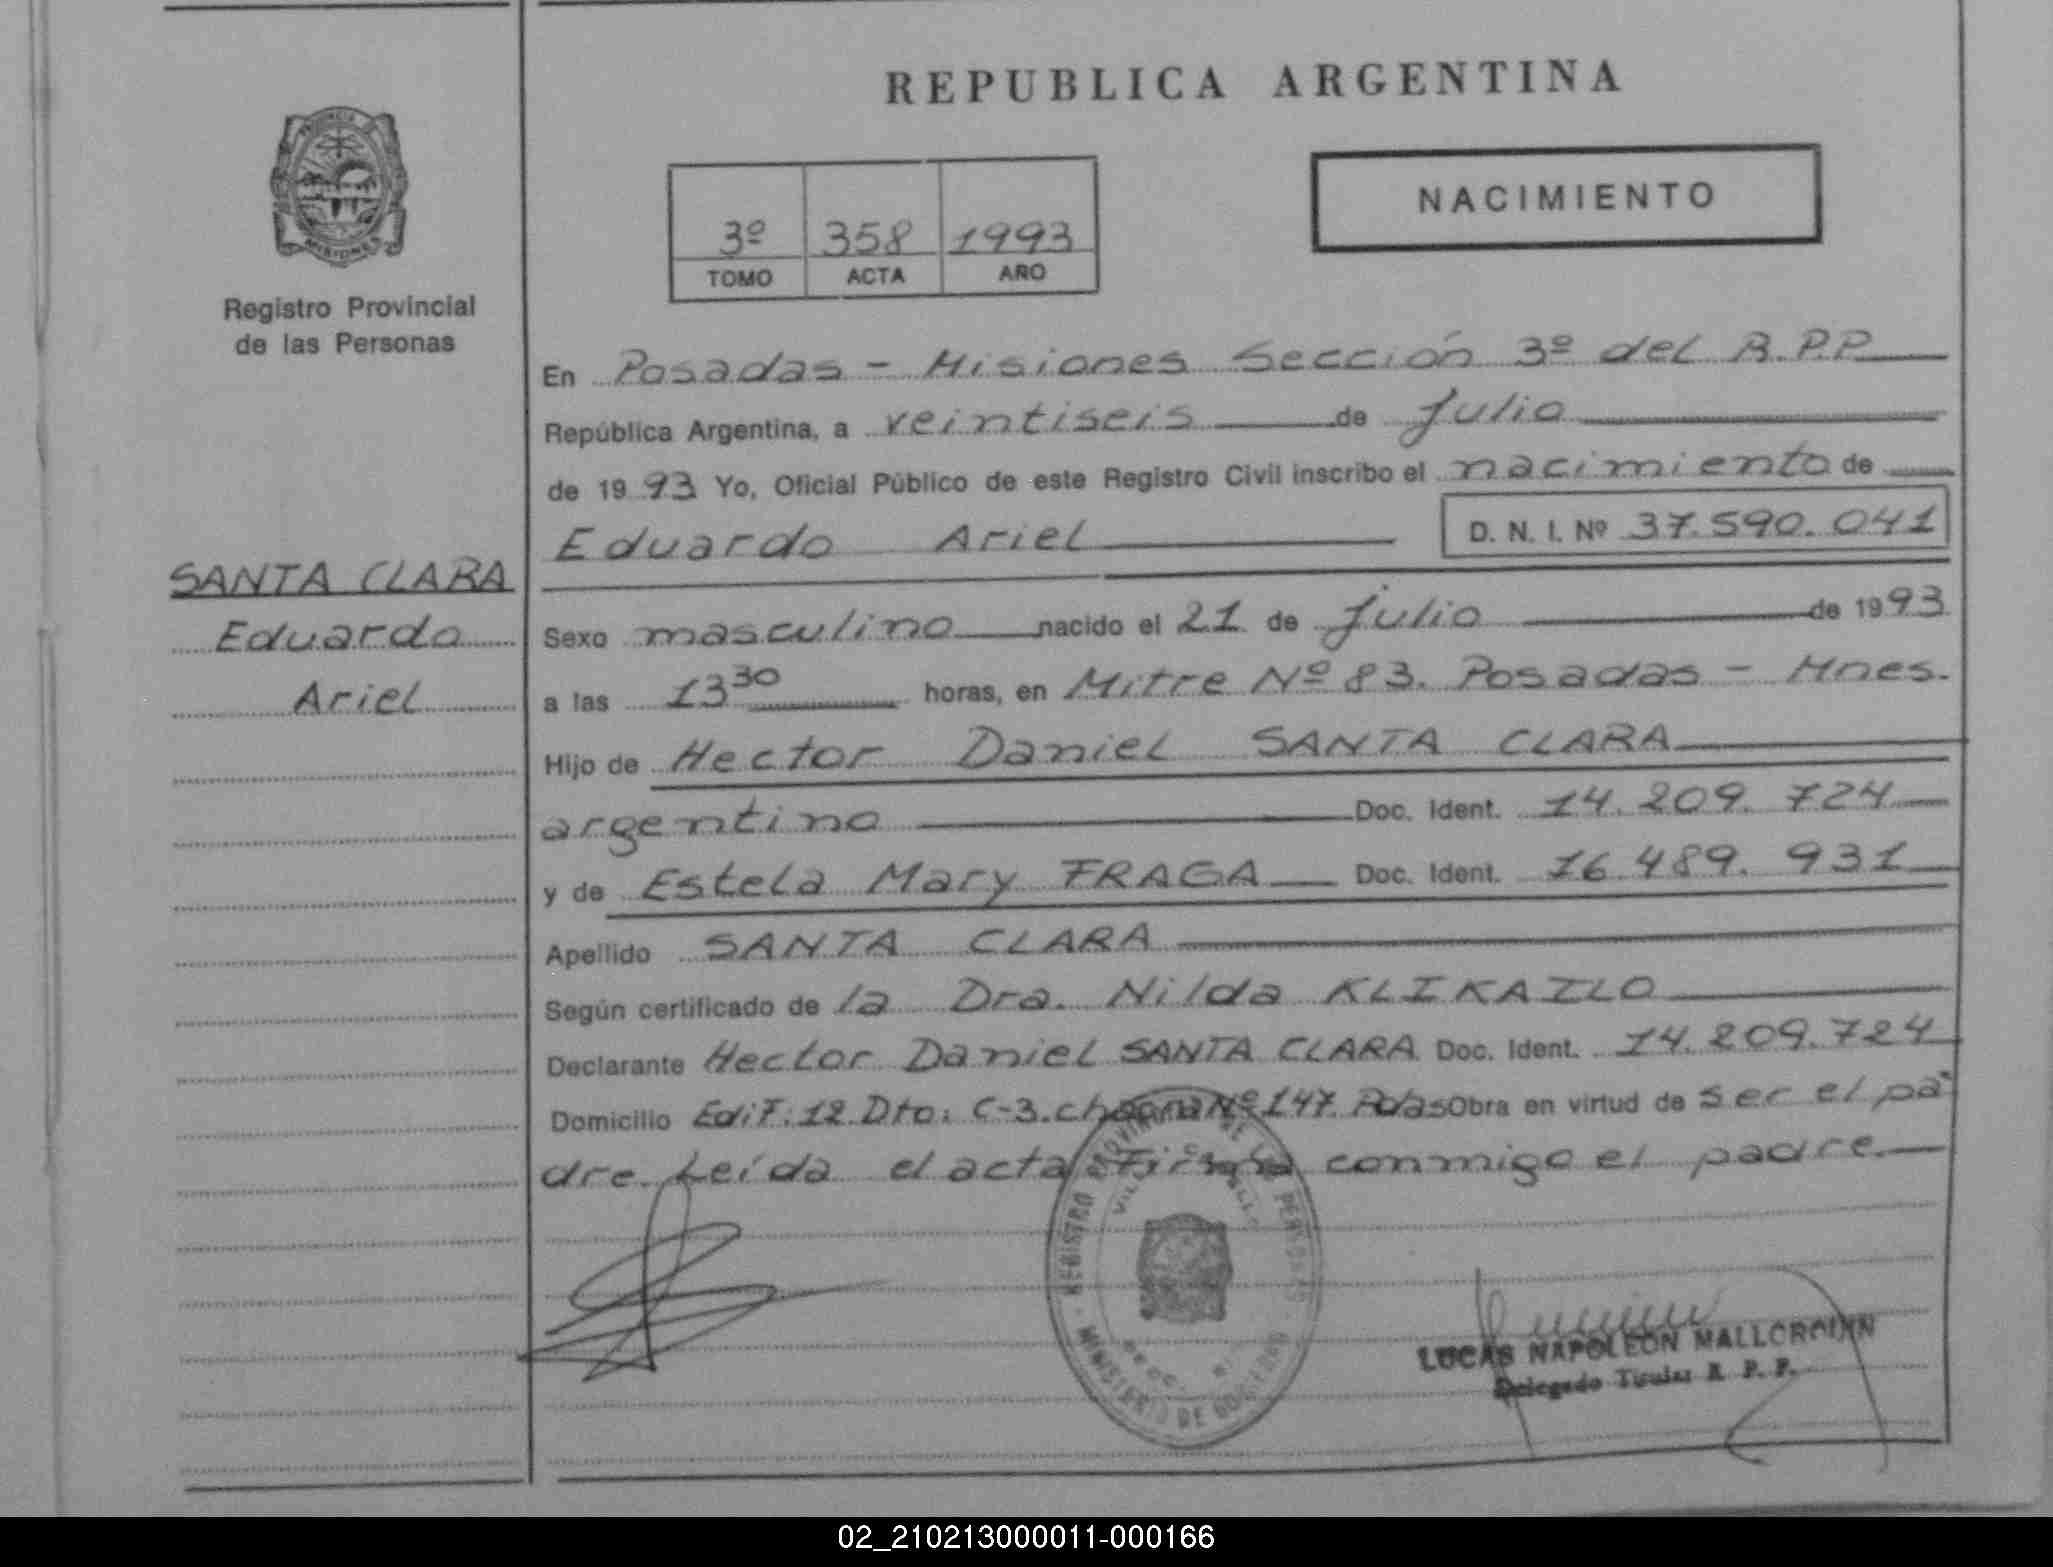 REPUBLICA ARGENTINA
NACIMIENTO
3º 358 1993
TOMO ACTA AÑO
PROVINCIA DE
MISIONES
Registro Provincial
de las Personas
SANTA CLARA
Eduardo
Ariel
En Posadas - Misiones Sección 3º del R.P.P
República Argentina, a veintiseis de Julio
de 1993 Yo, Oficial Público de este Registro Civil inscribo el nacimiento de
Eduardo Ariel D. N. I. Nº 37.590.041
Sexo masculino nacido el 21 de Julio de 1993
a las 13 30 horas, en Mitre Nº 83. Posadas - Mnes.
Hijo de Hector Daniel SANTA CLARA
argentino Doc. Ident. 14.209.724
y de Estela Mary FRAGA Doc. Ident. 16.489.931
Apellido SANTA CLARA
Según certificado de la Dra. Nilda KLIKAILO
Declarante Hector Daniel SANTA CLARA Doc. Ident. 14.209.724
Domicilio Edif: 12 Dto: C-3. chacra Nº 147 Pdas Obra en virtud de ser el pa
dre. Leída el acta firma conmigo el padre.
REGISTRO PROVINCIAL DE LAS PERSONAS
MINISTERIO DE GOBIERNO
LUCAS NAPOLEON
Delegado Titular R. P. P.
02_210213000011-000166